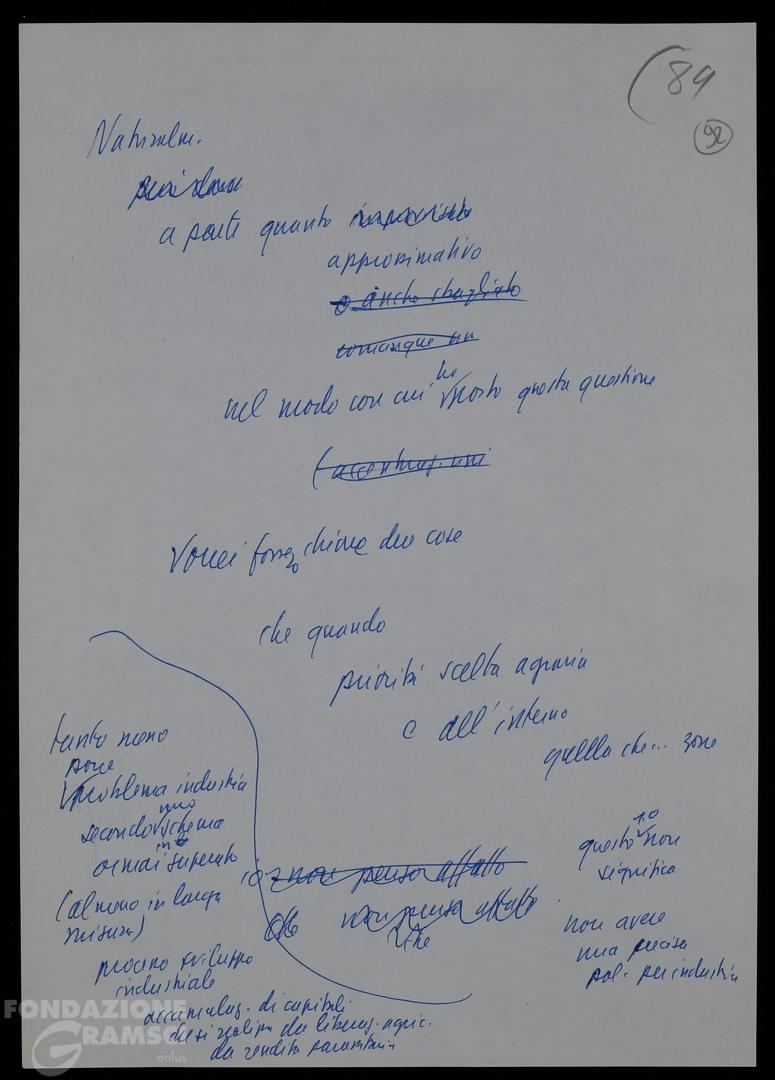 (89
92
Naturalm.
a parte quanto
approssimativo
o anche sbagliato
comunque un
nel modo con cui ho posto questa questione
(accentuaz. uni
Vorrei forse chiarire due cose
che quando
priorità scelta agraria
e all'interno
quella che... zone
tanto meno
porre
problema industria
secondo uno schema
ormai superato
(almeno in larga
misura)
processo sviluppo
industriale
accumulaz. di capitali
che si realizza da liberaz. agric.
da rendita parassitaria
io non penso affatto
non penso affatto
che
questo 1º non
significa
non avere
una precisa
pol. per industria
FONDAZIONE
GRAMSCI
onlus